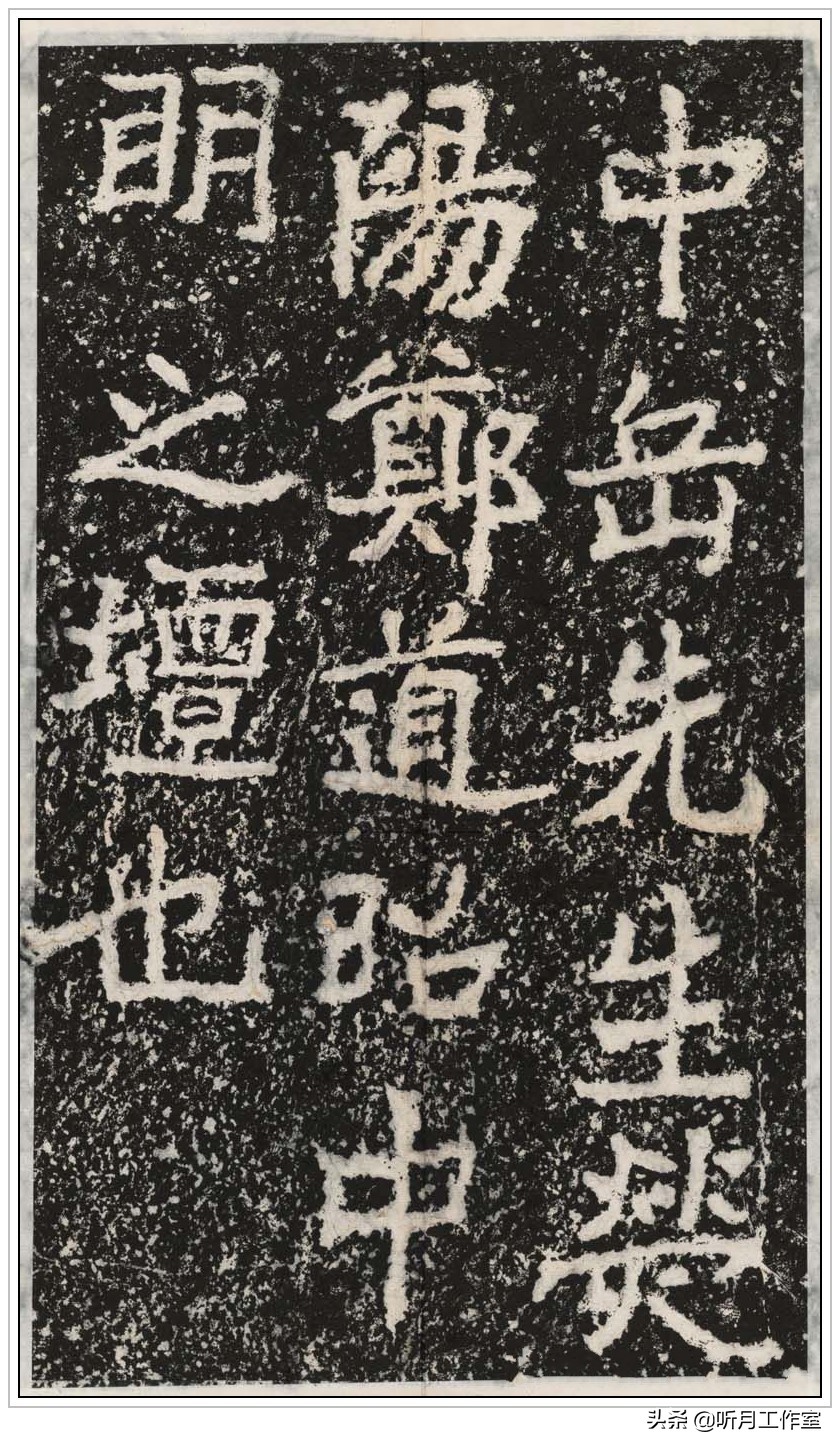 中岳先生熒
陽鄭道昭中
眀之壇也
头条 @听月工作室